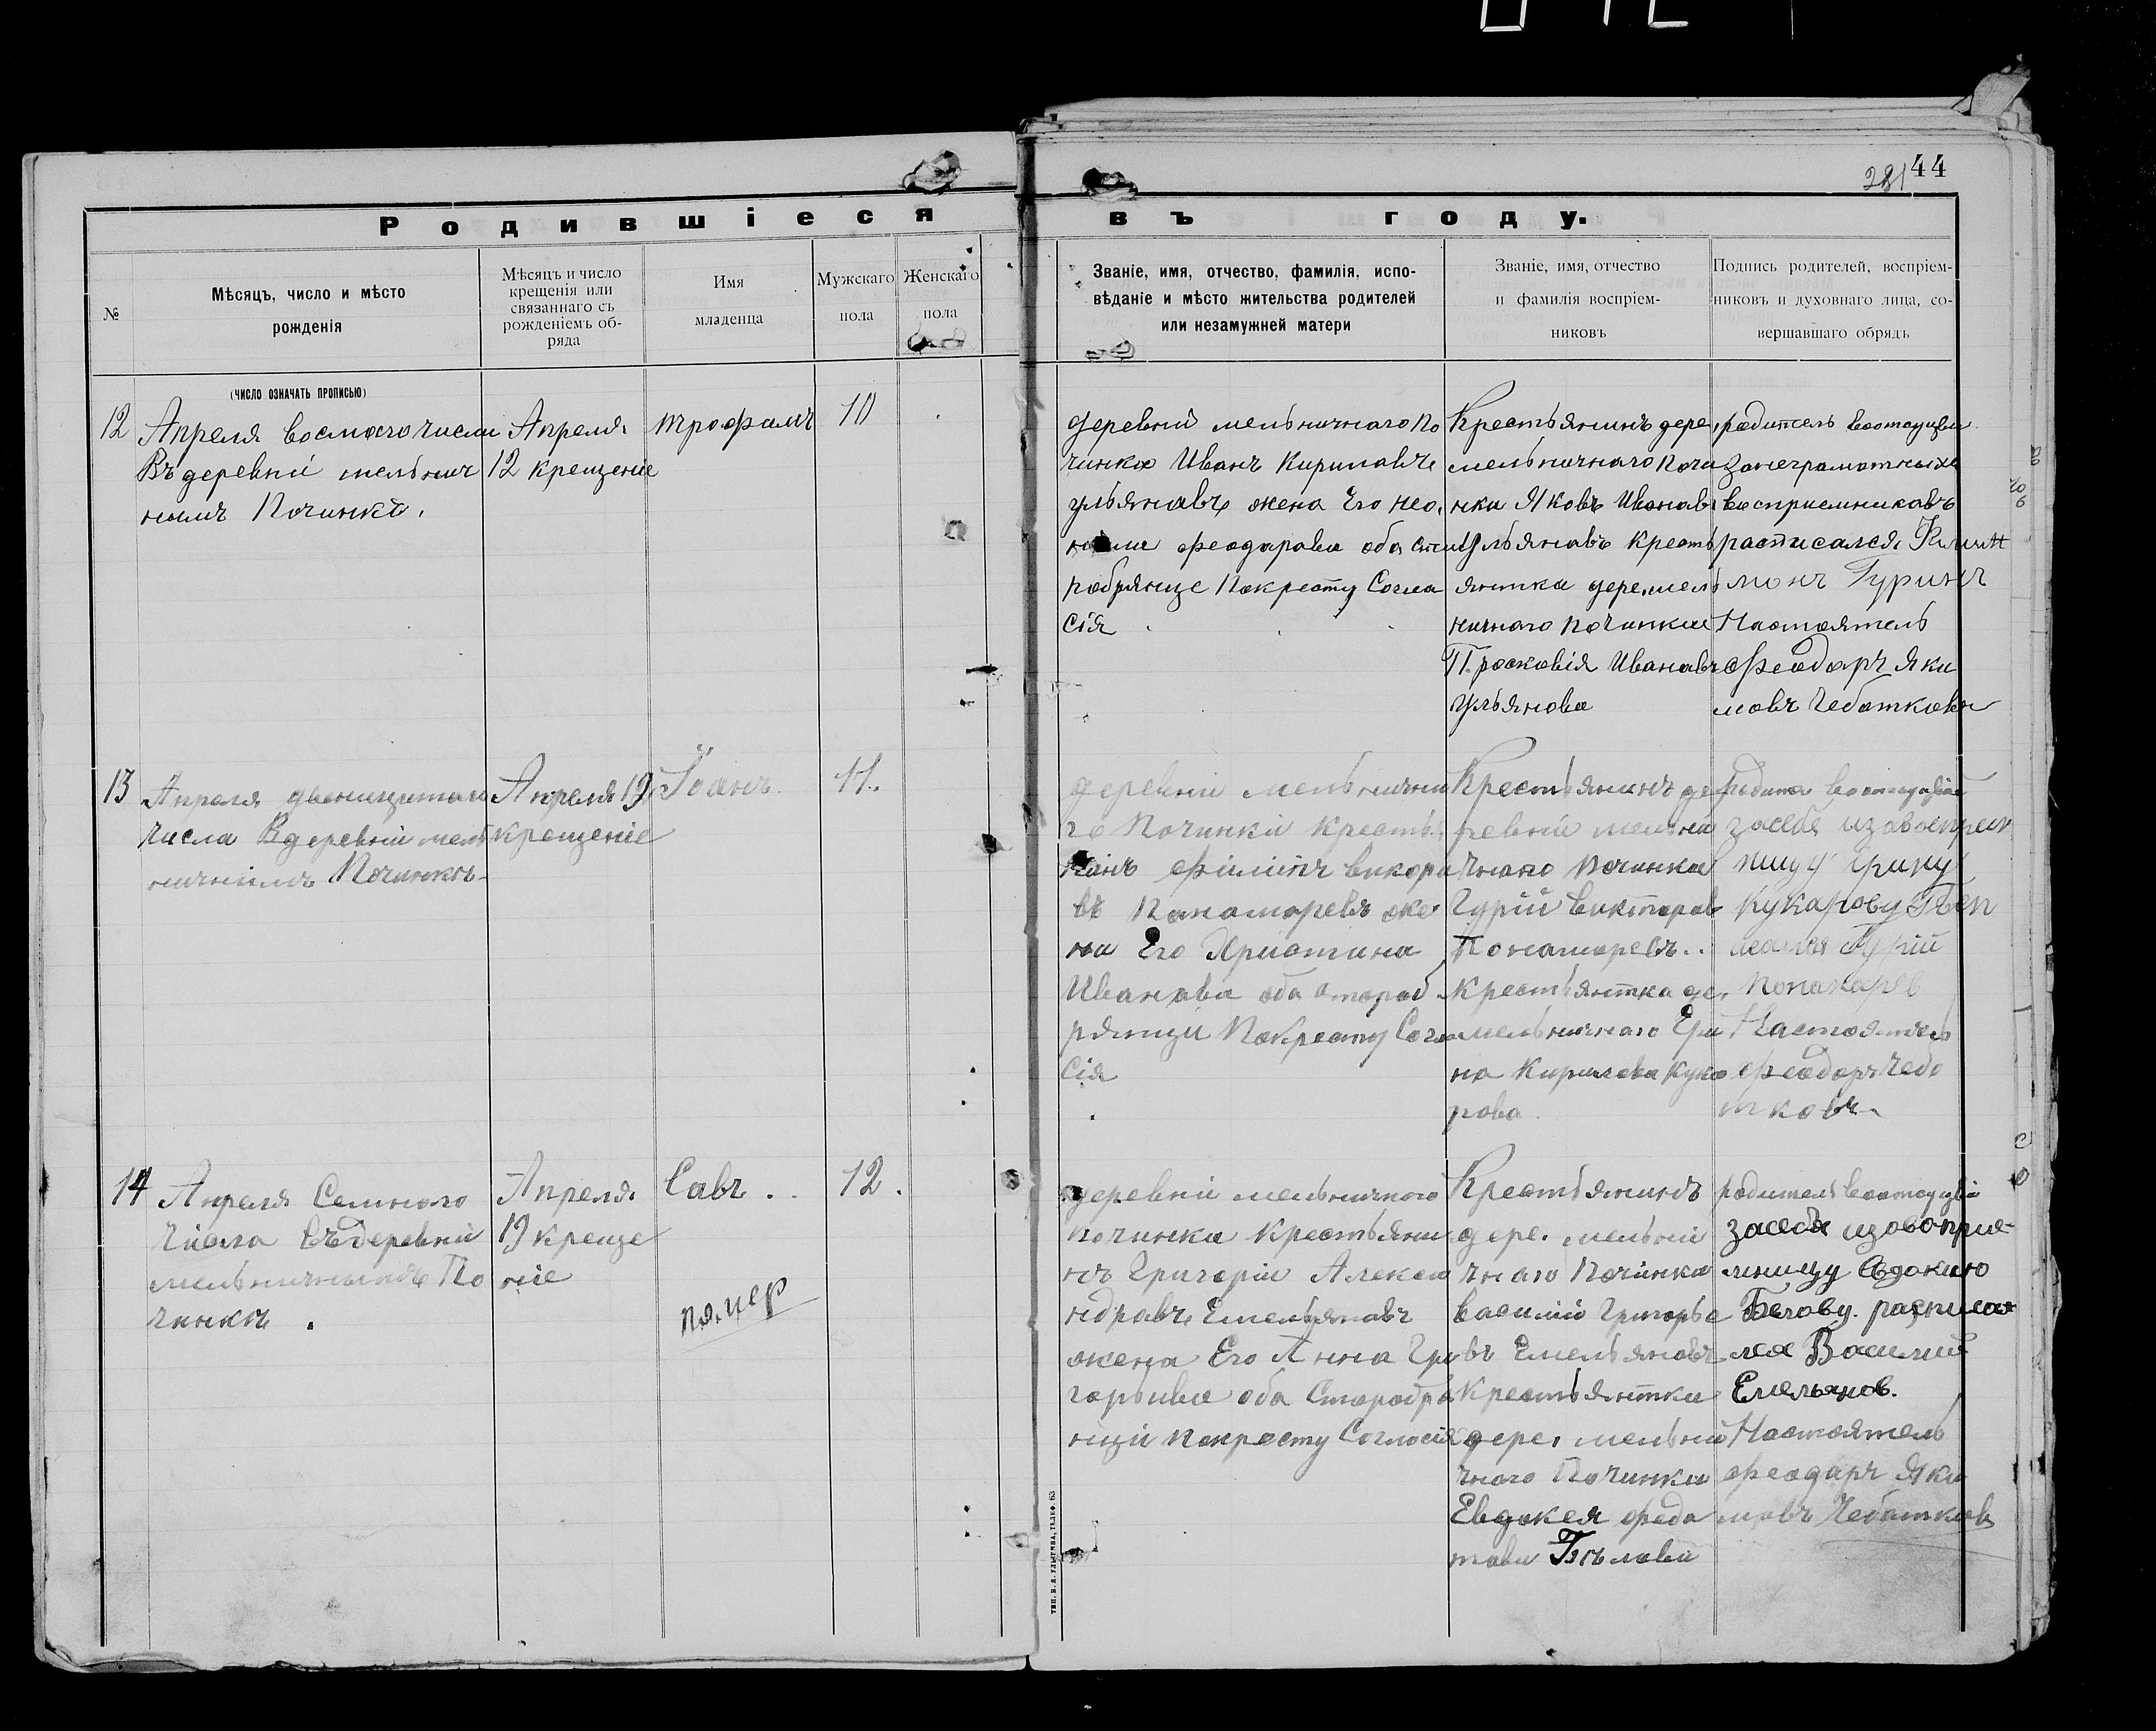 281 44
Родившіеся въ году.
№
Мѣсяцъ, число и мѣсто
рожденія
Мѣсяцъ и число
крещенія или
связаннаго съ
рожденіемъ об-
ряда
Имя
младенца
Мужскаго
пола
Женскаго
пола
Званіе, имя, отчество, фамилія, испо-
вѣданіе и мѣсто жительства родителей
или незамужней матери
Званіе, имя, отчество
и фамилія воспріем-
никовъ
Подпись родителей, воспріем-
никовъ и духовнаго лица, со-
вершавшаго обрядъ
(число означать прописью)
12
Апреля восмого числа
Въ деревни мельнич
нымъ Починки.
Апреля
12 крещеніе
трофимъ
10
деревни мельничного по
чинка Иванъ Кириловъ
ульяновъ жена Его
феодарава оба ста
робрянце Покресту Согла
сія
Крестьянинъ дере,
мельничного Почи
нка Яковъ Иванав
Ульяновъ крестъ
янтка дере. мель
ничного починка
Проскавія Иванав
Ульянова
родитель воотсуцви
занеграмотных
восприемникавъ
расписался
монъ Гуринъ
Настоятель
Феодаръ Яки
мовъ Чебаткавъ
13
Апреля двенацатаи
числа Вдеревни мель
ничнымъ Починкъ
Апреля 19
крещеніе
Іоанъ
11.
деревни мельнични
го Починки кресть
Пономаревъ же
на Его Христина
Иванова оба стороб
рянци Покресту Согла
сія
Крестьянинъ де
ревни мельни
чнаго починка
Гурій викторав
Понамаревъ..
крестьянтка де.
мельничного Ери
на Кирилова Куко
рова
засебя изавосприем
ницу Ирину
Кукарову
Гурий
Настоятель
феодаръ Чебо
тковъ
14
Апреля Семного
числа Въ деревни
мельничнымъ По
чинкъ.
Апреля
19 креще
ніе
Савъ..
помер
12.
деревни мельничного
починка крестьяни
нъ Григорій Алекса
ндравъ Емельянавъ
жена Его Анна Гри
горьива оба Старобря
нци покресту Согласія
Крестьянинъ
дере. мельни
чнаго Починка
василий Григорье
въ Емельяновъ
крестьянтка
дере. мельни
чнаго Починка
Евдокея федо
това Бѣлова
родитель воотсуцвіи
засебя изовоприе-
мницу Авдокию
Белову. расписа
лся Василий
Емельянов.
Настоятель
феодаръ Яки
мовъ Чебаткавъ